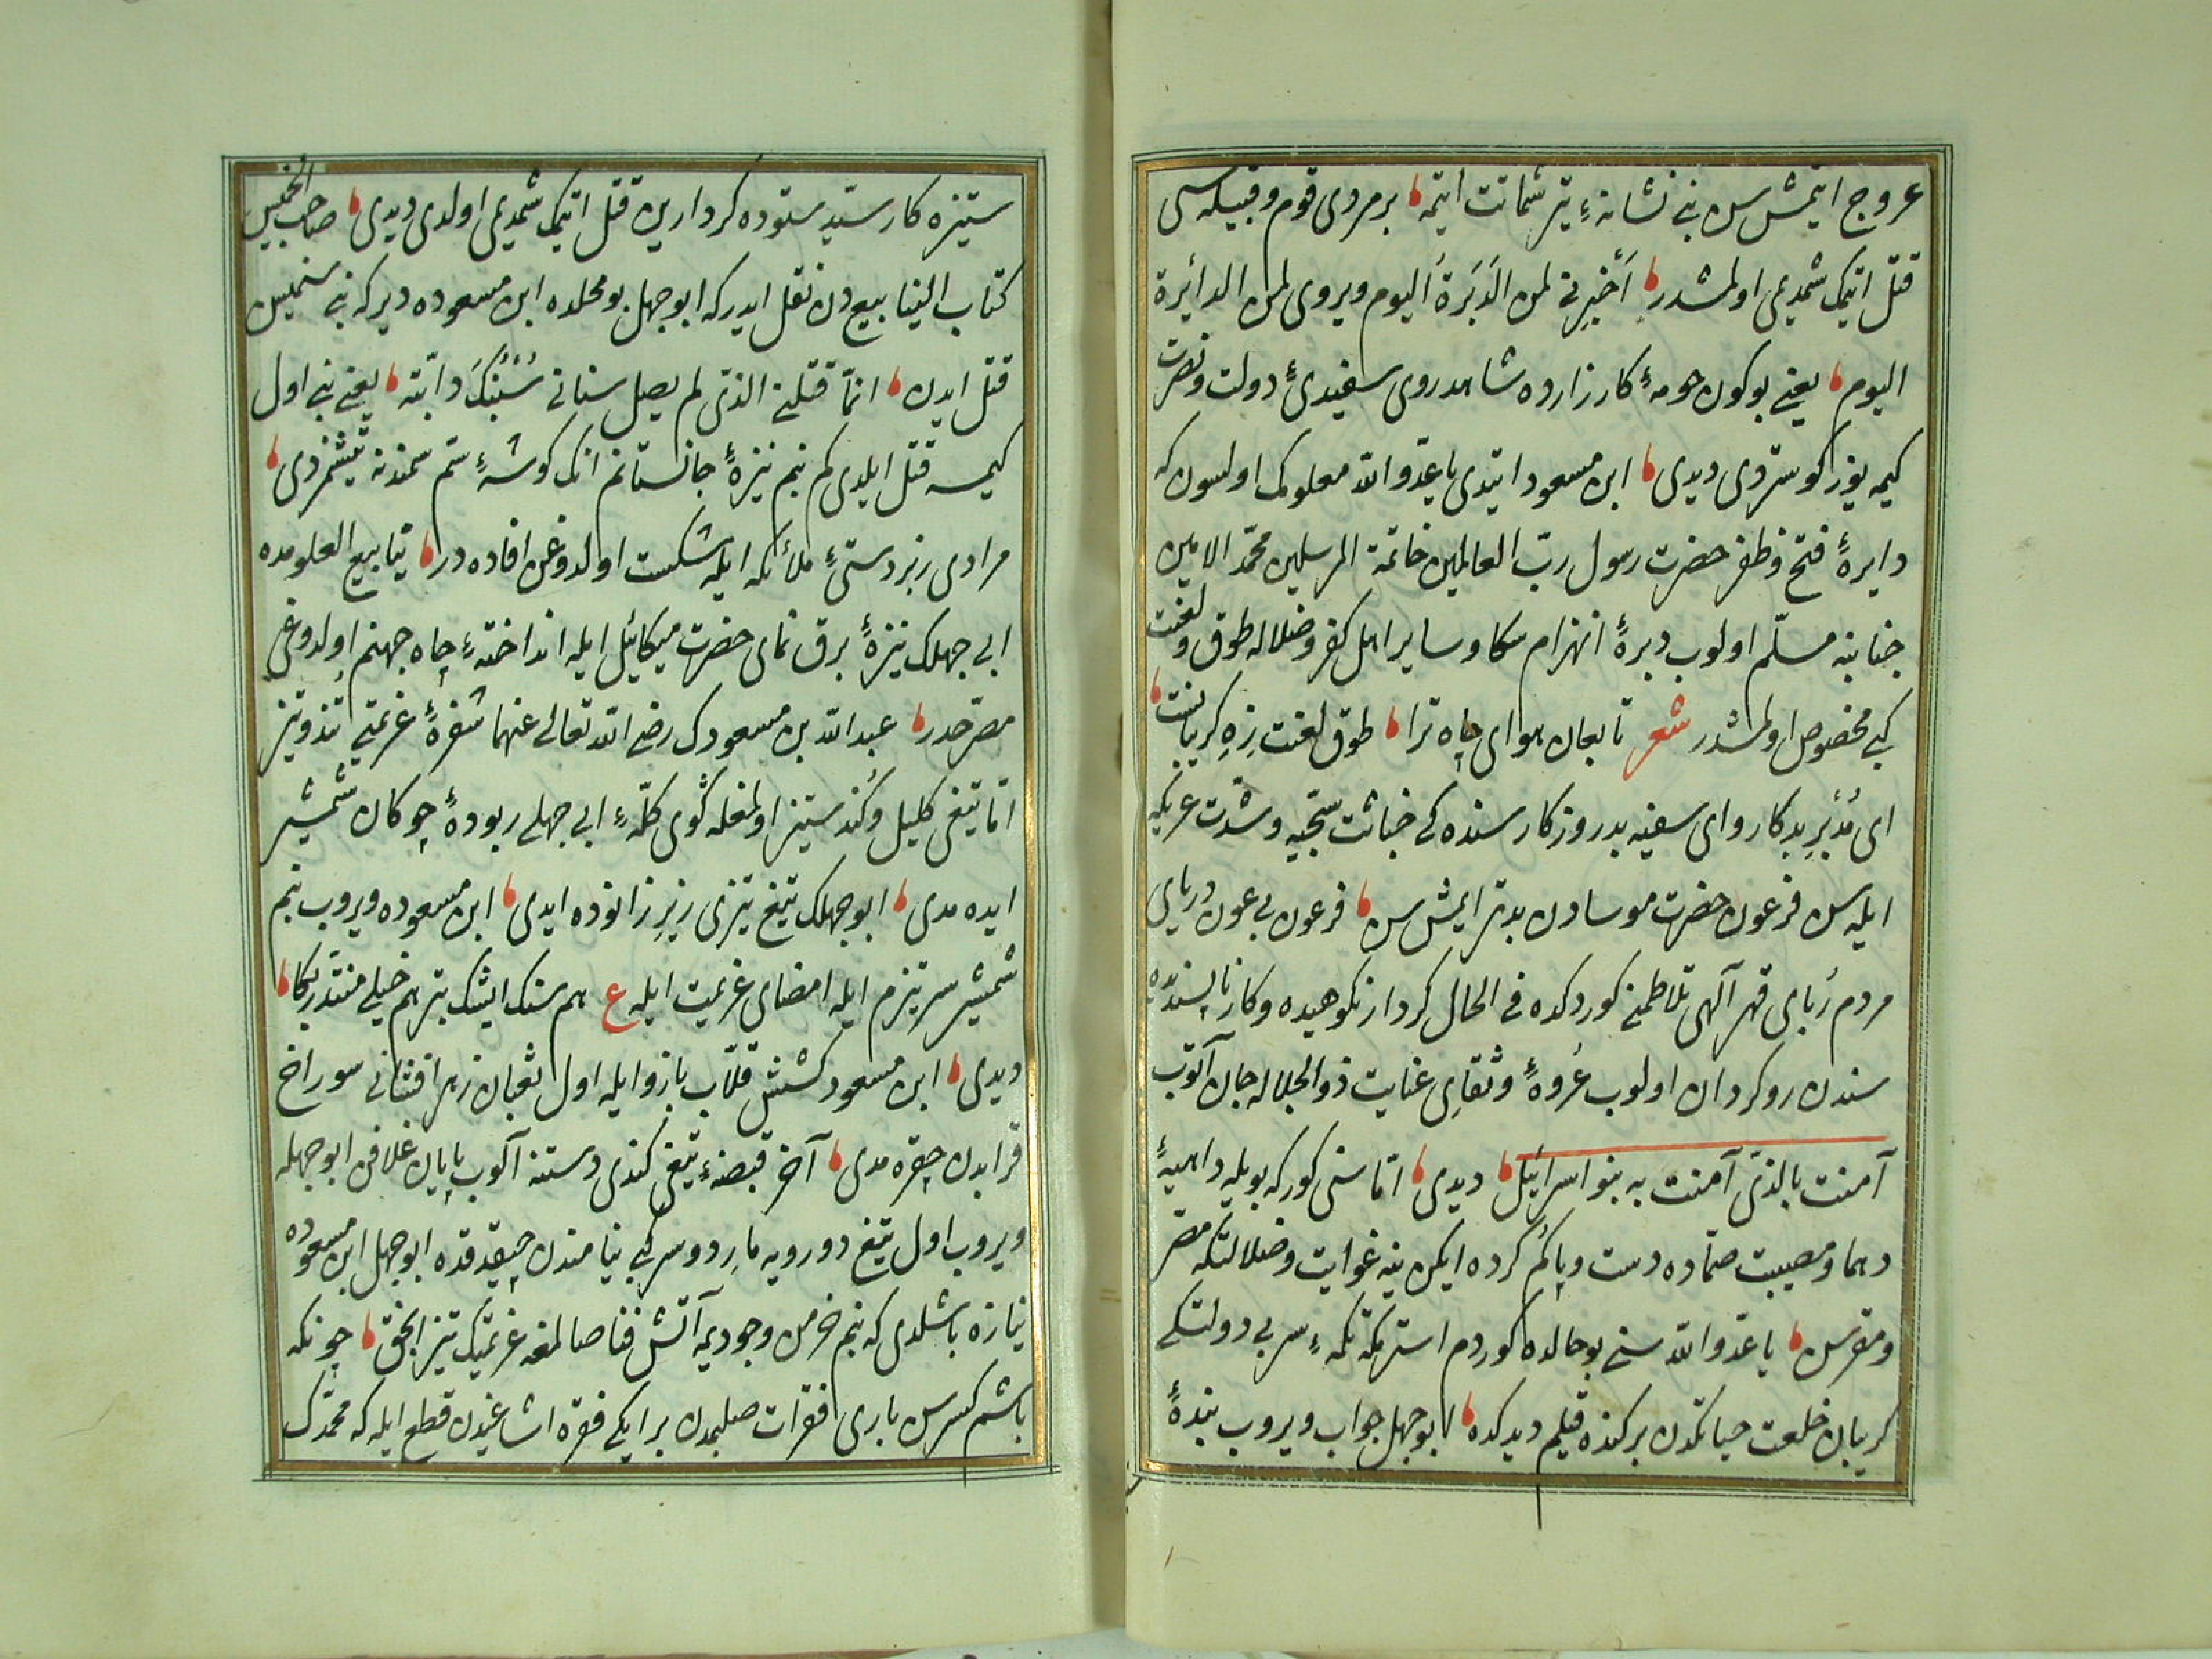 عروج ایتمش سن بنی نشانهٔ تیر شماتت ایتمه ، بر مردی قوم و قبیله سی
قتل اتیمک شمدیمی اولمشدر ، اَخْبِرنی لمن الدَبَرَة اَلیوم ویروی لمن الدائرة
الیوم ، یعنی بوکون حومهٔ کارزارده شاهد روی سفیدیٔ دولت ونصرت
کیمه یوز کوستردی دیدی ، ابن مسعود ایتدی یا عدوالله معلومک اولسون که
دایرهٔ فتح وظفر حضرت رسول ربّ العالمین خاتمة المرسلین محمّد الامین
جنابنه مسلّم اولوب دبرهٔ انهزام سکا وسایر اهل کفر وضلاله طوق ولعنت
کبی مخصوص اولمشدر شعر تا بجان هوای چاه ترا ، طوق لعنت زه کریبانست ،
ای مُدْبِر بدکار وای سفیه بدروزکار سنده کی خباثت سجّیه وشدّت عریکه
ایله سن فرعون حضرت موسادن بدتر ایمش سن ، فرعون بی عون دریای
مردم رُبای قهر آلهی تلاطمنی کوردکده فی الحال کردار نکوهیده وکار ناپسندیده
سندن روکردان اولوب عُروهٔ وثقای عنایت ذوالجلاله جان آتوب
آمنت بالذی آمنت به بنو اسرائیل ، دیدی ، امّا سنی کور که بویله داهیهٔ
دهما ومصیبت صمّاده دست وپا کُم کرده ایکن ینه غوایت وضلالتکه مصرّ
ومقرسن ، یا عدوالله سنی بو حالده کوردم استر که تکمهٔ سر بی دولتکی
کریبان خلعت حیاتکدن برکنده قیلم دیدکده ، ابو جهل جواب ویروب بندهٔ
ستیزه کار سیّد ستوده کردارین قتل اتیمک شمدیمی اولدی دیدی ، صاحب الخمیس
کتاب الینابیع دن نقل ایدر که ابو جهل بو محلده ابن مسعوده دیر که بنی سنمیسن
قتل ایدن ، انمّا قتلنی الذی لم یصل سنانی سُنْبُکَ دابّته ، یعنی بنی اول
کیمسه قتل ایلدی کم بنم نیزهٔ جانستانم انک کوشهٔ ستم سمندنه یتیشمزدی ،
مرادی زبردستیٔ ملائکه ایله شکست اولدوغن افاده در ، ینابیع العلومده
ابی جهلک نیزهٔ برق نمای حضرت میکائیل ایله انداختهٔ چاه جهنم اولدوغی
مصرّحدر ، عبدالله بن مسعودک رضی الله تعالی عنهما شفرهٔ عزیمتی تند وتیز
امّا تیغی کلیل وکُند ستیز اولمغله کوی کلّهٔ ابی جهلی ربودهٔ چوکان شمشیر
ایده مدی ، ابو جهلک تیغ تیزی زیر زانوده ایدی ، ابن مسعوده ویروب بنم
شمشیر سرتیزم ایله امضای عزیمت ایله ع هم سنک ایشک بتر هم خیلی منتدر بکا ،
دیدی ، ابن مسعود کشش قلّاب بازو ایله اول ثعبان زهر افشانی سوراخ
قرابدن چیقره مدی ، آخر قبضهٔ تیغی کندی دستنه آلوب پایان غلافن ابو جهله
ویروب اول تیغ دورویه مار دوسر کبی نیامندن چیقدقده ابو جهل ابن مسعوده
نیازه باشلدی که بنم خرمن وجودیمه آتش فنا صالمغه عزیمتک تیز انجق ، چونکه
باشم کسرسن باری فقرات صلبمدن بر ایکی فقره اشاغیدن قطع ایله که محمّدک